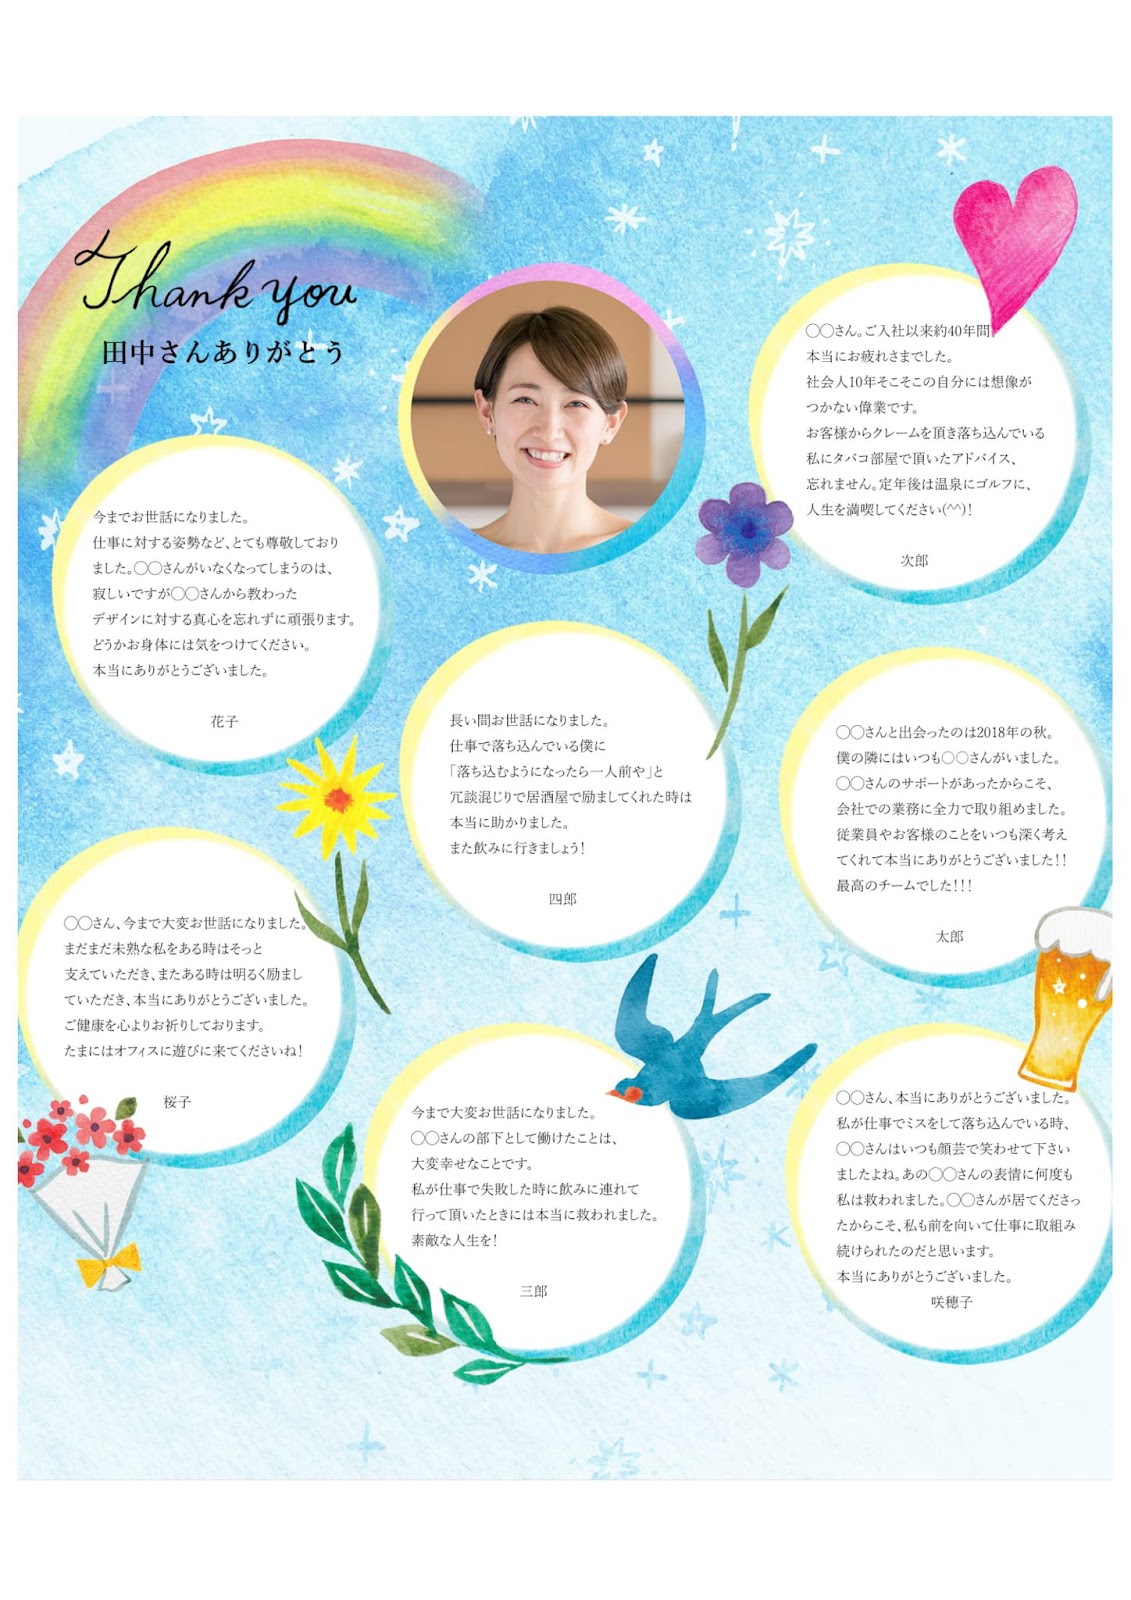 Thank you
田中さんありがとう
〇〇さん。ご入社以来約40年間。
本当にお疲れさまでした。
社会人10年そこそこの自分には想像が
つかない偉業です。
お客様からクレームを頂き落ち込んでいる
私にタバコ部屋で頂いたアドバイス、
忘れません。定年後は温泉にゴルフに、
人生を満喫してください(^^)!
次郎
今までお世話になりました。
仕事に対する姿勢など、とても尊敬しており
ました。〇〇さんがいなくなってしまうのは、
寂しいですが〇〇さんから教わった
デザインに対する真心を忘れずに頑張ります。
どうかお身体には気をつけてください。
本当にありがとうございました。
花子
長い間お世話になりました。
仕事で落ち込んでいる僕に
「落ち込むようになったら一人前や」と
冗談混じりで居酒屋で励ましてくれた時は
本当に助かりました。
また飲みに行きましょう!
四郎
〇〇さんと出会ったのは2018年の秋。
僕の隣にはいつも〇〇さんがいました。
〇〇さんのサポートがあったからこそ、
会社での業務に全力で取り組めました。
従業員やお客様のことをいつも深く考え
てくれて本当にありがとうございました!!
最高のチームでした!!!
太郎
〇〇さん、今まで大変お世話になりました。
まだまだ未熟な私をある時はそっと
支えていただき、またある時は明るく励まし
ていただき、本当にありがとうございました。
ご健康を心よりお祈りしております。
たまにはオフィスに遊びに来てくださいね!
桜子
今まで大変お世話になりました。
〇〇さんの部下として働けたことは、
大変幸せなことです。
私が仕事で失敗した時に飲みに連れて
行って頂いたときには本当に救われました。
素敵な人生を!
三郎
〇〇さん、本当にありがとうございました。
私が仕事でミスをして落ち込んでいる時、
〇〇さんはいつも顔芸で笑わせて下さい
ましたよね。あの〇〇さんの表情に何度も
私は救われました。〇〇さんが居てくださっ
たからこそ、私も前を向いて仕事に取組み
続けられたのだと思います。
本当にありがとうございました。
咲穂子